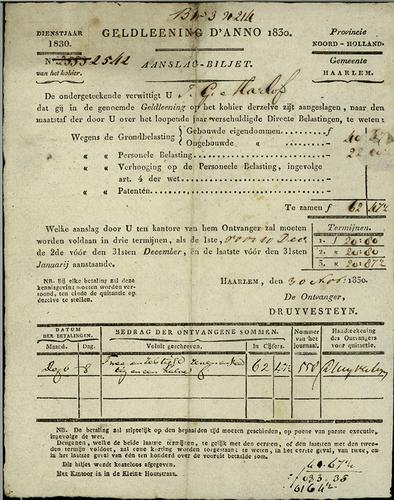 DIENSTJAAR
1830.
GELDLEENING D'ANNO 1830.
Provincie
NOORD-HOLLAND.
No. 2542
van het kohier.
AANSLAG-BILJET.
Gemeente
HAARLEM.
De ondergeteekende verwittigt U J. G.
dat gij in de genoemde Geldleening op het kohier derzelve zijt aangeslagen, naar den
maatstaf der door U over het loopende jaar verschuldigde Directe Belastingen, te weten:
Wegens de Grondbelasting Gebouwde eigendommen f
Ongebouwde »
» » Personele Belasting
» » Verhooging op de Personeele Belasting, ingevolge
art. 4 der wet
» » Patenten
Te zamen f 62 47½
Welke aanslag door U ten kantore van hem Ontvanger zal moeten
worden voldaan in drie termijnen, als de 1ste, voor 10 Dec.
de 2de vóór den 31sten December, en de laatste vóór den 31sten
Januarij aanstaande.
Termijnen.
1. f 20:80
2. » 20:80
3. » 20:87½
NB. Bij elke betaling zal deze
kennisgeving moeten worden ver-
toond, ten einde de quitantie op
dezelve te stellen.
HAARLEM, den 30 Nov. 1830.
De Ontvanger,
DRUYVESTEYN.
DATUM
DER BETALINGEN.
BEDRAG DER ONTVANGENE SOMMEN.
Nommer
van het
journaal.
Handteekening
des Ontvangers
voor quitantie.
Maand.
Dag.
Voluit geschreven.
In Cijfers.
Dec. 8
Twee en zestig
62 47½
NB. De betaling zal stiptelijk op den bepaalden tijd moeten geschieden, op poene van parate executie,
ingevolge de wet.
Dengenen, welke de beide laatste termijnen, te gelijk met den eersten, of den laatsten met den twee-
den termijn voldoet, zal eene korting worden toegestaan: te weten, in het eerste geval, van twee, en
in het laatste geval van één ten honderd over de vooruit betaalde som.
Dit biljet wordt kosteloos afgegeven.
Het Kantoor is in de Kleine Houtstraat.